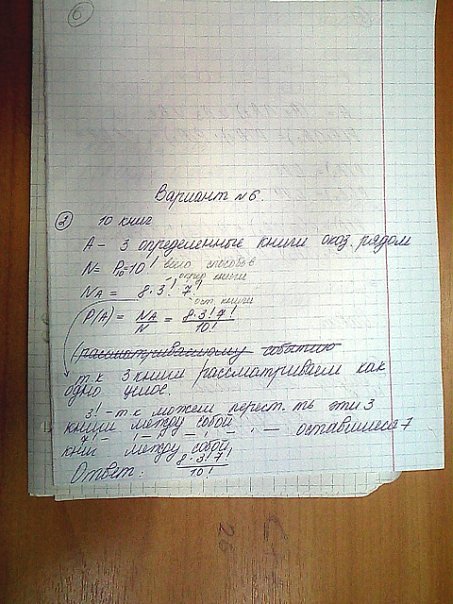 6
Вариант №6.
② 10 книг
А – 3 определенные книги оказ. рядом
N = P₁₀ = 10! всего способов
опред книги
N_A = 8·3!·7!
ост. книги
P(A) = N_A/N = 8·3!7!/10!
(рассматриваемому событию
т к 3 книги рассматриваем как
одно целое.
3! – т.к можем перест. ть эти 3
книги между собой
7! – – " – " – " – оставшиеся 7
книг между собой,
Ответ: 8·3!7!/10!